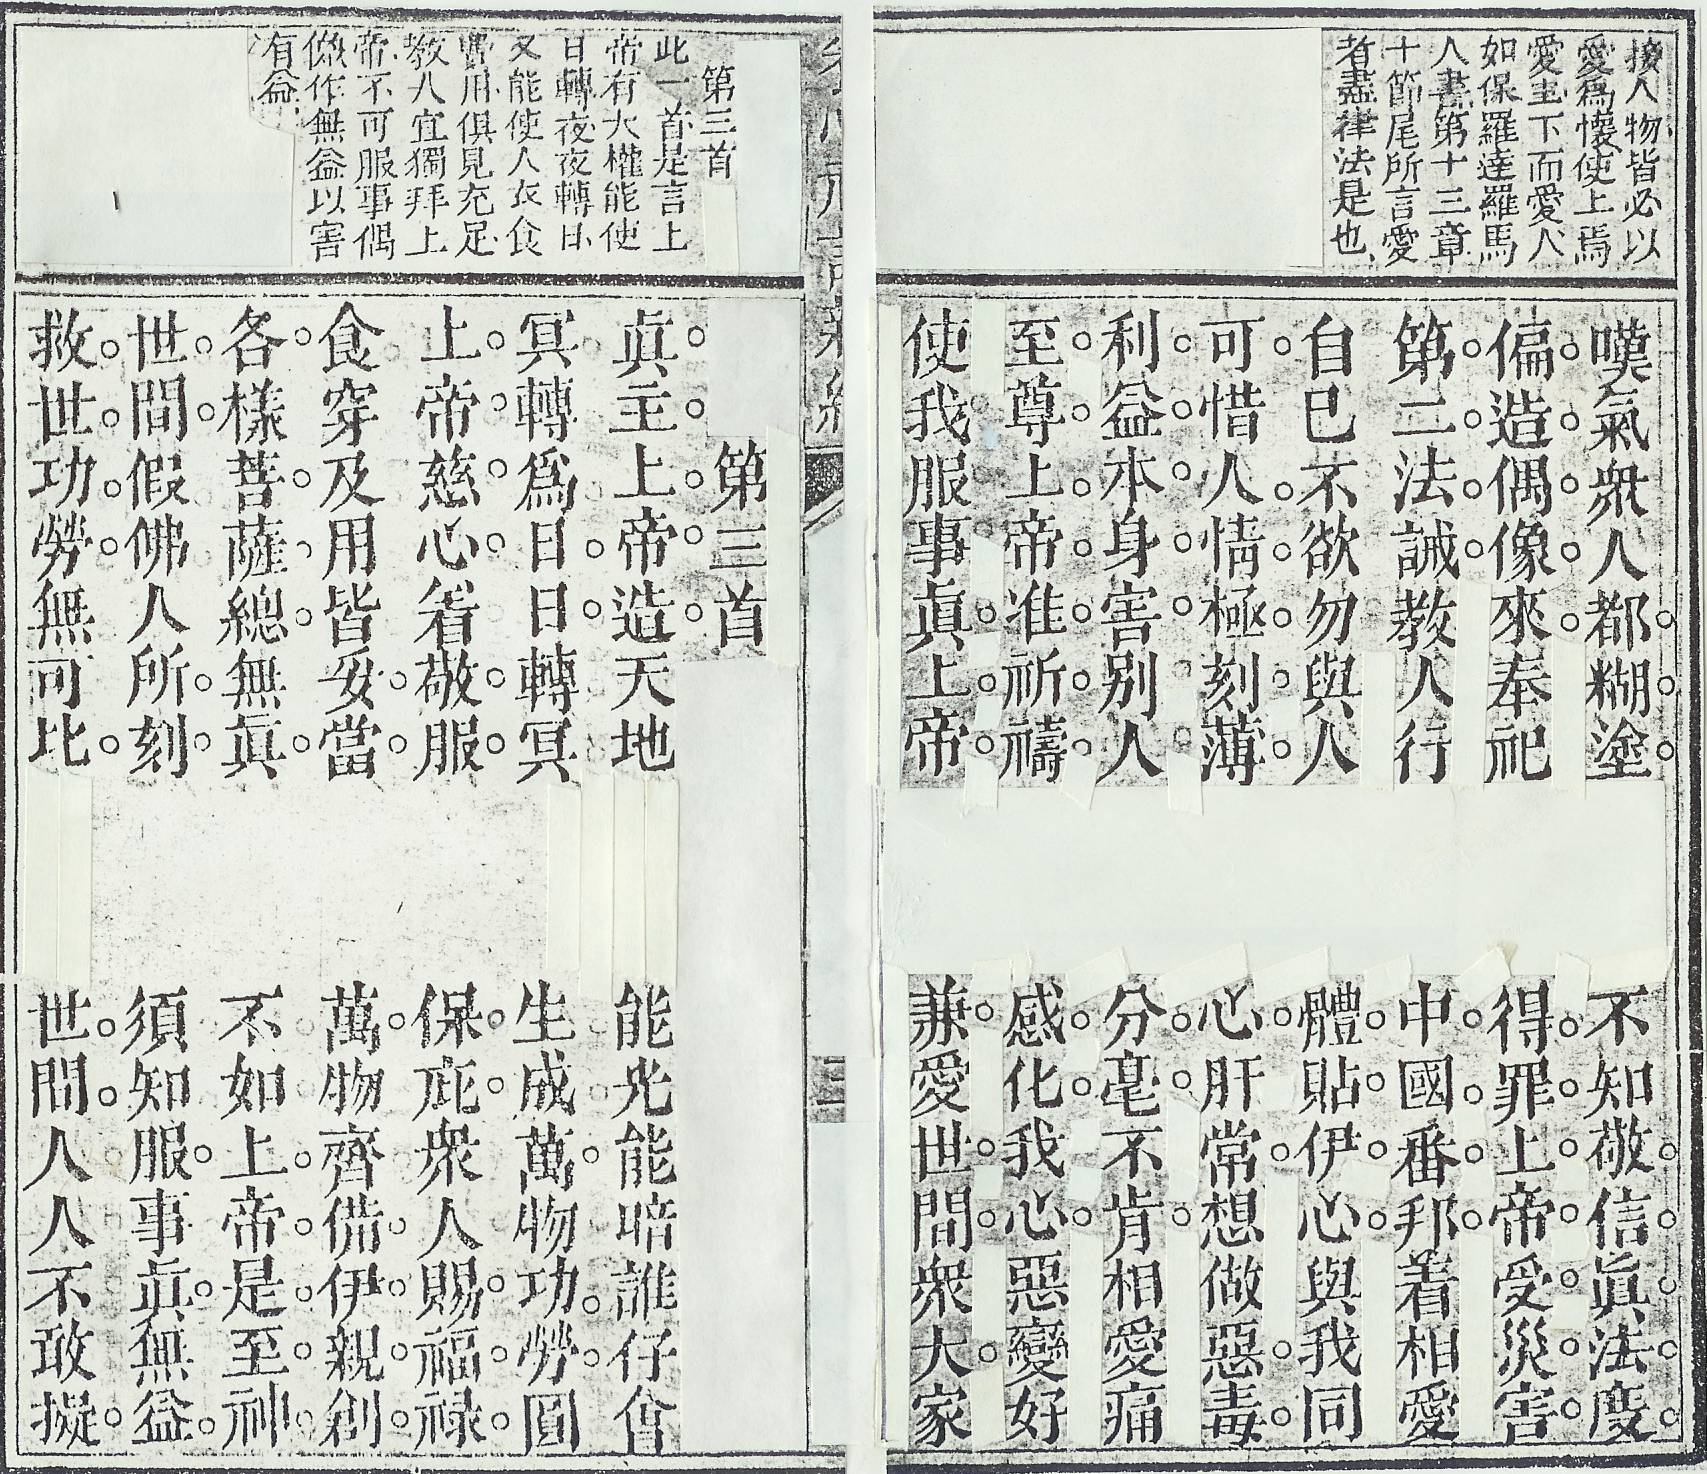 接人物皆必以
愛爲懷使上焉
愛主下而愛人
如保羅達羅馬
人書第十三章
十節尾所言愛
者盡律法是也
嘆氣衆人都糊塗
不知敬信眞法度
偏造偶像來奉祀
得罪上帝受災害
第二法誡教人行
中國番邦着相愛
自已不欲勿與人
體貼伊心與我同
可惜人情極刻薄
心肝常想做惡毒
利益本身害别人
分毫不肯相愛痛
至尊上帝准祈禱
感化我心惡變好
使我服事眞上帝
兼愛世間衆大家
三
第三首
此一首是言上
帝有大權能使
日轉夜夜轉日
又能使人衣食
實用俱見充足
教人宜獨拜上
帝不可服事偶
像作無益以害
有益
第三首
眞主上帝造天地
能光能暗誰仔會
冥轉爲日日轉冥
生成萬物功勞圓
上帝慈心看敬服
保庇衆人賜福祿
食穿及用皆妥當
萬物齊備伊親創
各樣菩薩總無眞
不如上帝是至神
世間假佛人所刻
須知服事眞無益
救世功勞無可比
世間人人不敢擬